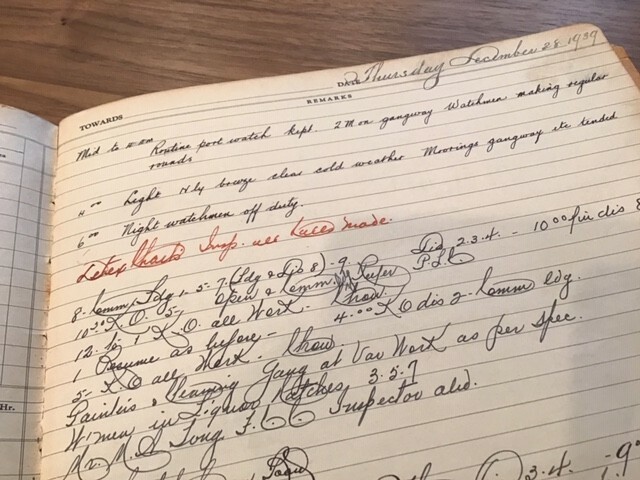 DATE Thursday December 28 1939
TOWARDS REMARKS
Mid to Routine port watch kept. 2 M on gangway Watchmen making regular
rounds
4 00 Light N'ly breeze clear cold weather Moorings gangway etc tended
6 00 Night watchmen off duty.
Detex Charts Insp. all made.
8- Comm. Ldg 1-5-7 (Ldg & Dis 8) - 9. Dis 2.3.4. - 10 00 fin dis 8
10 30 K.O. 5- Open & Comm. Reefer P.L.
12- to 1 K.O. all Work - Chow
1 Resume as before - 4.00 KO dis 2- Comm ldg.
5- KO all Work - Chow.
Painters & Cleaning Gang at Var Work as per Spec.
W/men in Liquor Hatches 3.5.7
Mr. M. Long F. Inspector abd.
3.4. - 9
Hr.